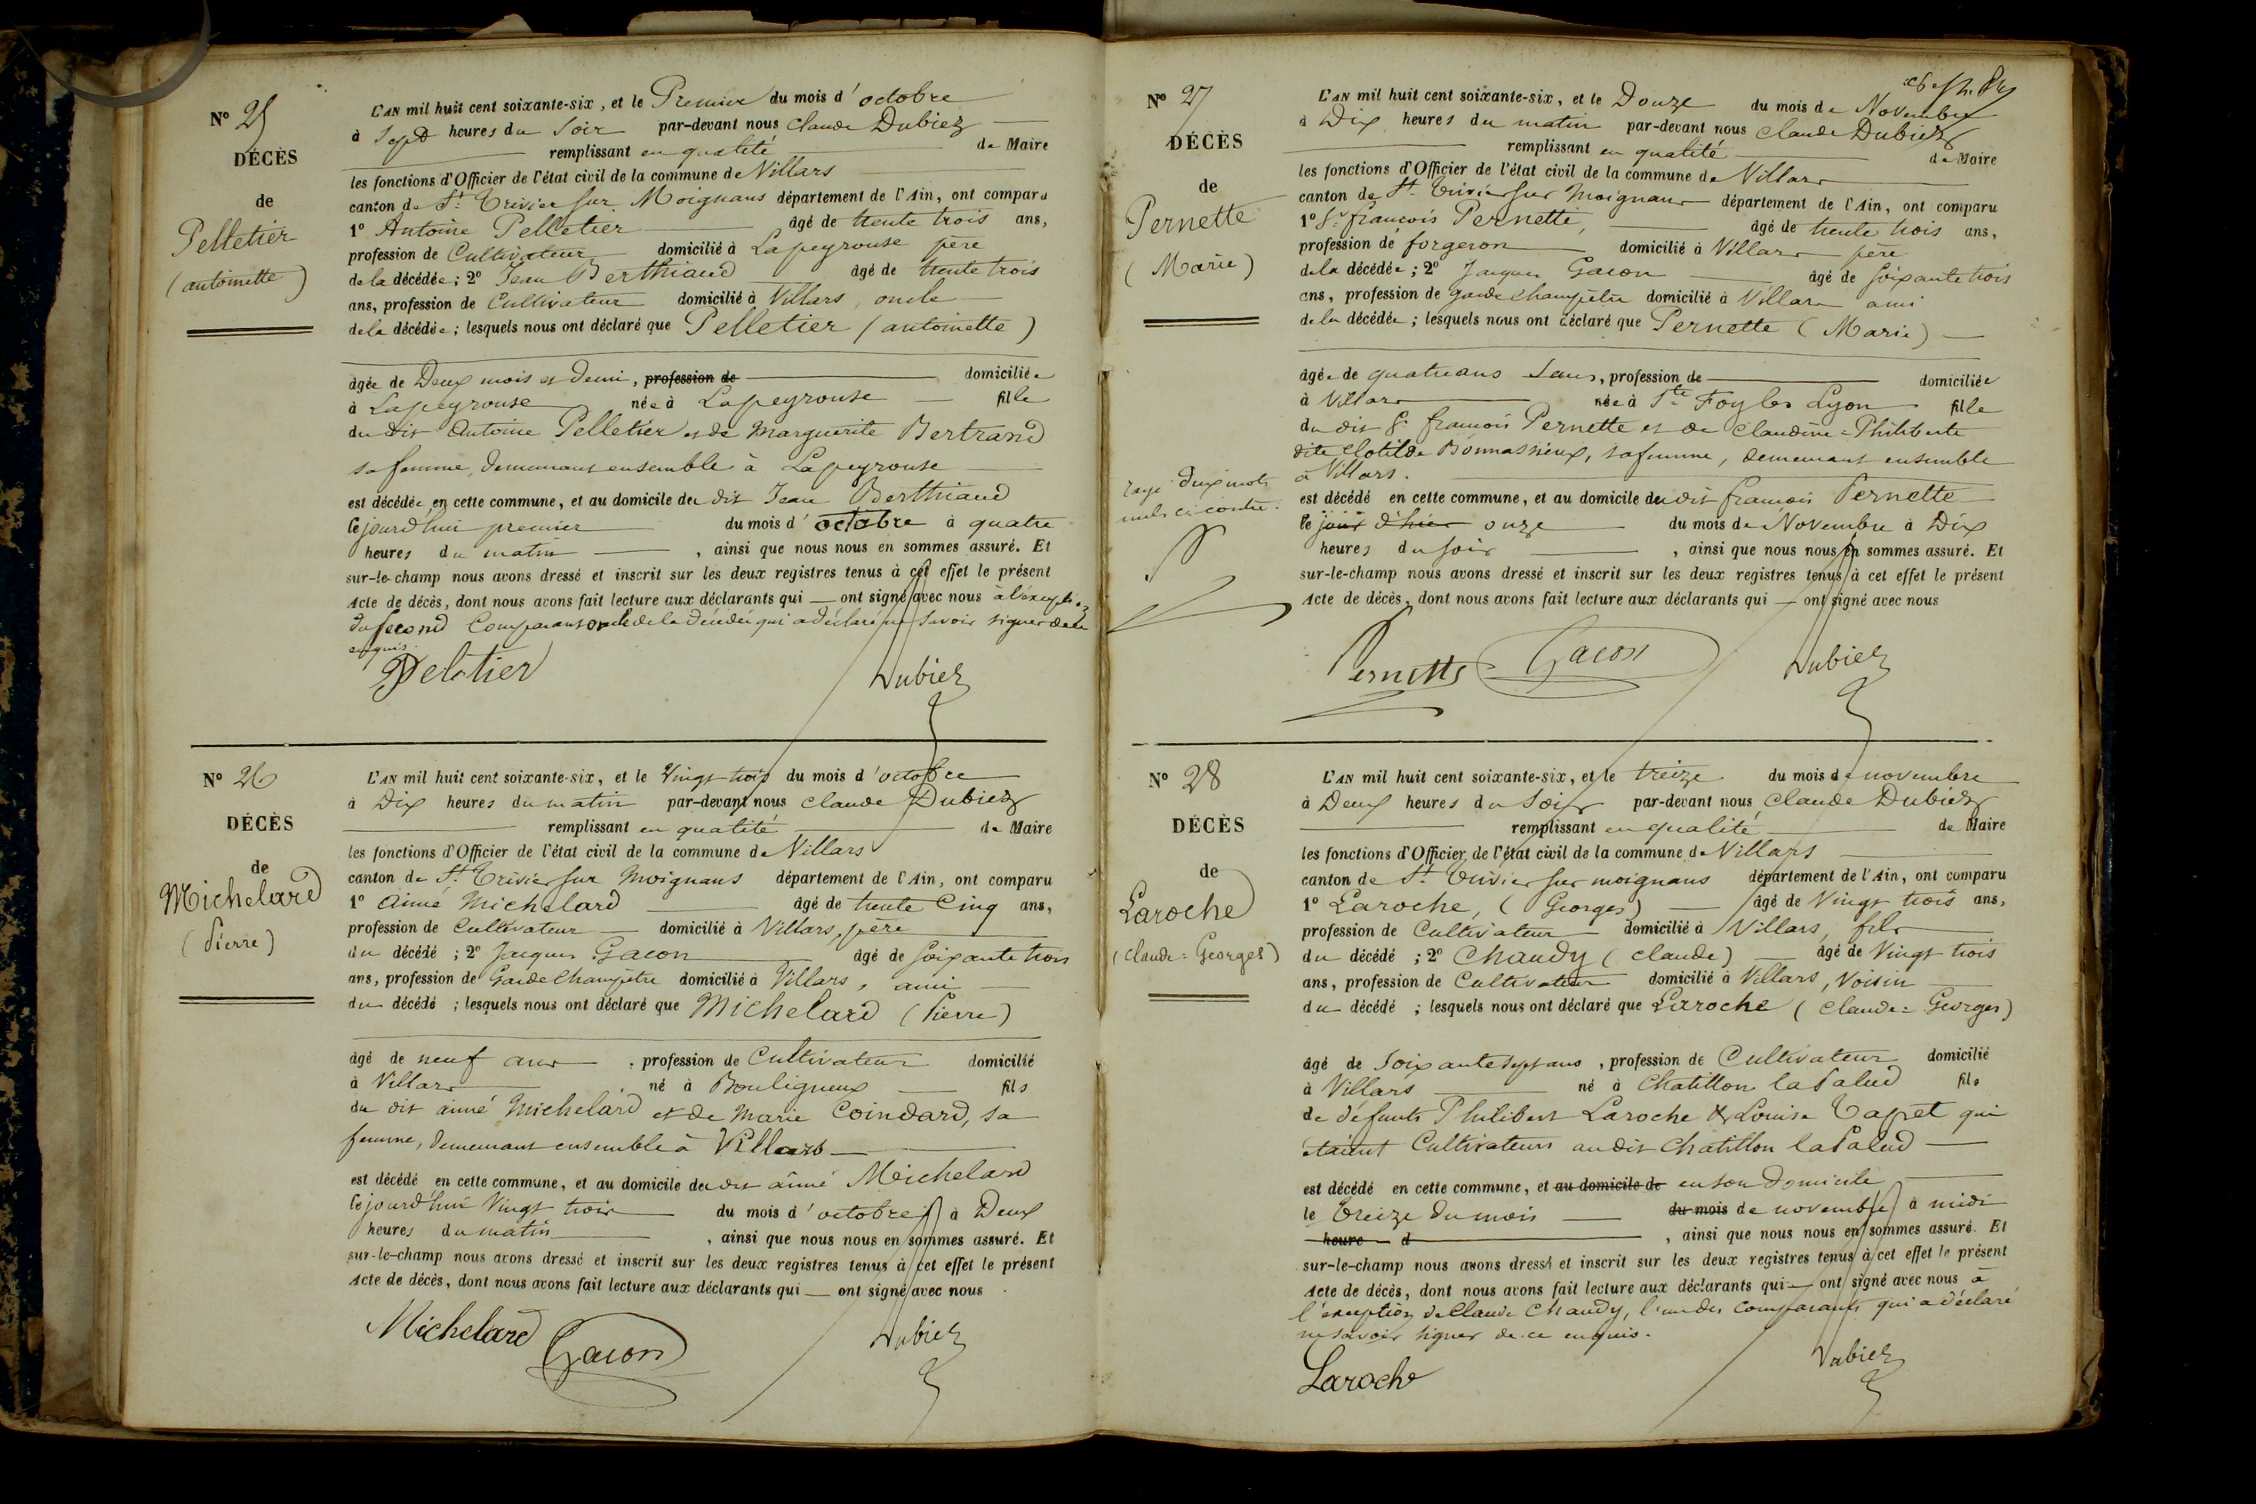 N° 25
DÉCÈS
de
Pelletier
(antoinette)
L'AN mil huit cent soixante-six, et le Premier du mois d'octobre
à Sept heures du Soir par-devant nous Claude Dubiez
remplissant en qualité de Maire
les fonctions d'Officier de l'état civil de la commune de Villars
canton de St. Trivier sur Moignans département de l'Ain, ont comparu
1° Antoine Pelletier âgé de trente trois ans,
profession de Cultivateur domicilié à Lapeyrouse père
de la décédée; 2° Jean Berthiaud âgé de trente trois
ans, profession de Cultivateur domicilié à Villars, oncle
de la décédée; lesquels nous ont déclaré que Pelletier (antoinette)
âgée de Deux mois et demi, profession de domiciliée
à Lapeyrouse née à Lapeyrouse fille
du dit Antoine Pelletier et de Marguerite Bertrand
sa femme, demeurant ensemble à Lapeyrouse
est décédée en cette commune, et au domicile du dit Jean Berthiaud
le jourd'hui premier du mois d'octobre à quatre
heures du matin, ainsi que nous nous en sommes assuré. Et
sur-le-champ nous avons dressé et inscrit sur les deux registres tenus à cet effet le présent
Acte de décès, dont nous avons fait lecture aux déclarants qui ont signé avec nous à l'exception
du second Comparant oncle de la décédée qui a déclaré ne Savoir signer de ce
enquis.
Peletier Dubiez
N° 26
DÉCÈS
de
Michelard
(Pierre)
L'AN mil huit cent soixante-six, et le Vingt trois du mois d'octobre
à Dix heures du matin par-devant nous Claude Dubiez
remplissant en qualité de Maire
les fonctions d'Officier de l'état civil de la commune de Villars
canton de St. Trivier sur Moignans département de l'Ain, ont comparu
1° Aimé Michelard âgé de trente Cinq ans,
profession de Cultivateur domicilié à Villars, père
du décédé; 2° Jacques Gacon âgé de soixante trois
ans, profession de Garde Champêtre domicilié à Villars, ami
du décédé; lesquels nous ont déclaré que Michelard (Pierre)
âgé de neuf ans, profession de Cultivateur domicilié
à Villars né à Bouligneux fils
du dit aimé Michelard et de Marie Coindard, sa
femme, demeurant ensemble à Villars
est décédé en cette commune, et au domicile du dit aimé Michelard
le jourd'hui Vingt trois du mois d'octobre à Deux
heures du matin, ainsi que nous nous en sommes assuré. Et
sur-le-champ nous avons dressé et inscrit sur les deux registres tenus à cet effet le présent
Acte de décès, dont nous avons fait lecture aux déclarants qui ont signé avec nous
Michelard Gacon Dubiez
N° 27
DÉCÈS
de
Pernette
(Marie)
L'AN mil huit cent soixante-six, et le Douze du mois de Novembre
à Dix heures du matin par-devant nous Claude Dubiez
remplissant en qualité de Maire
les fonctions d'Officier de l'état civil de la commune de Villars
canton de St. Trivier sur Moignans département de l'Ain, ont comparu
1° françois Pernette, âgé de trente trois ans,
profession de forgeron domicilié à Villars père
de la décédée; 2° Jacques Gacon âgé de soixante trois
ans, profession de garde champêtre domicilié à Villars ami
de la décédée; lesquels nous ont déclaré que Pernette (Marie)
âgée de quatre ans Sans, profession de domiciliée
à Villars née à Ste Foy les Lyon fille
du dit françois Pernette et de Claudine-Philiberte
dite Clotilde Bonnassieux, sa femme, demeurant ensemble
à Villars.
est décédé en cette commune, et au domicile du dit françois Pernette
le jour d'hier onze du mois de Novembre à Dix
heures du soir, ainsi que nous nous en sommes assuré. Et
sur-le-champ nous avons dressé et inscrit sur les deux registres tenus à cet effet le présent
Acte de décès, dont nous avons fait lecture aux déclarants qui ont signé avec nous
rayé deux mots
nuls ci contre.
Pernette Gacon Dubiez
N° 28
DÉCÈS
de
Laroche
(Claude=Georges)
L'AN mil huit cent soixante-six, et le treize du mois de novembre
à Deux heures du Soir par-devant nous Claude Dubiez
remplissant en qualité de Maire
les fonctions d'Officier de l'état civil de la commune de Villars
canton de St. Trivier sur moignans département de l'Ain, ont comparu
1° Laroche, (Georges) âgé de Vingt trois ans,
profession de Cultivateur domicilié à Villars, fils
du décédé; 2° Chaudy (Claude) âgé de Vingt trois
ans, profession de Cultivateur domicilié à Villars, Voisin
du décédé; lesquels nous ont déclaré que Laroche (Claude=Georges)
âgé de Soixante sept ans, profession de Cultivateur domicilié
à Villars né à Chatillon la Palud fils
de défunts Philibert Laroche & Louise Tapret qui
étaient Cultivateurs au dit Chatillon la Palud
est décédé en cette commune, et au domicile de en son Domicile
le Treize du mois du mois de novembre à midi
heure d, ainsi que nous nous en sommes assuré. Et
sur-le-champ nous avons dressé et inscrit sur les deux registres tenus à cet effet le présent
Acte de décès, dont nous avons fait lecture aux déclarants qui ont signé avec nous à
l'exception de Claude Chaudy, l'un des comparants qui a déclaré
ne savoir signer de ce enquis.
Laroche Dubiez